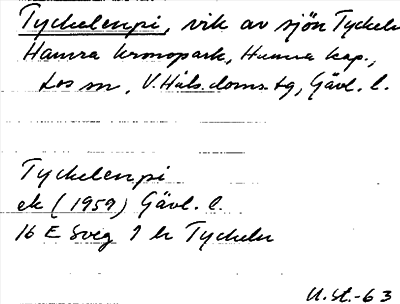 Tyckelenpi, vik av sjön Tyckeln
Hamra kronopark, Hamra kap.,
Los sn, V. Häls. doms. tg, Gävl. l.
Tyckelenpi
ek (1959) Gävl. l.
16 E Sveg 9 h Tyckeln
U.St.-63